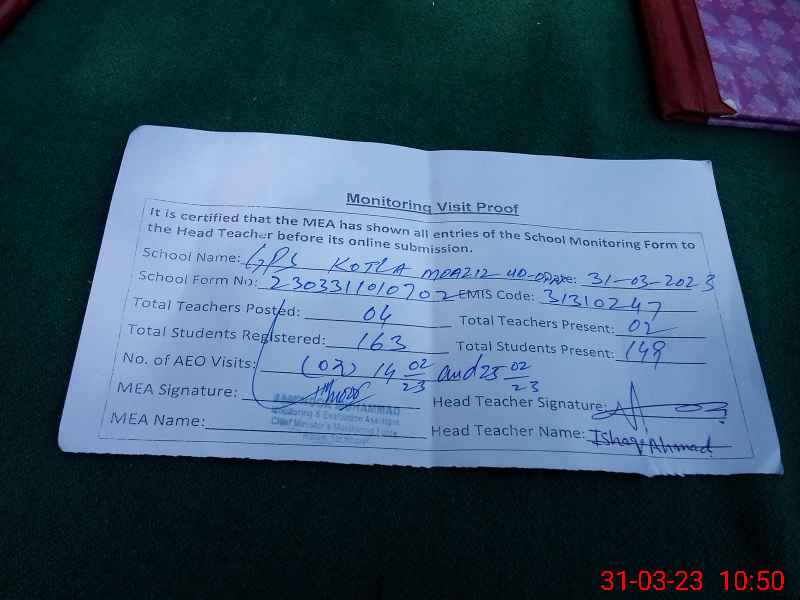 Monitoring Visit Proof
It is certified that the MEA has shown all entries of the School Monitoring Form to
the Head Teacher before its online submission.
School Name: GPS KOTLA MOAZIZ UD-D Date: 31-03-2023
School Form No: 2303311010702 EMIS Code: 31310247
Total Teachers Posted: 04 Total Teachers Present: 02
Total Students Registered: 163 Total Students Present: 149
No. of AEO Visits: (02) 14 02/23 and 25 02/23
MEA Signature: Head Teacher Signature:
MUHAMMAD
Monitoring & Evaluation Assistant
Chief Minister's Monitoring Force
MEA Name: Head Teacher Name: Ishaq Ahmad
31-03-23 10:50